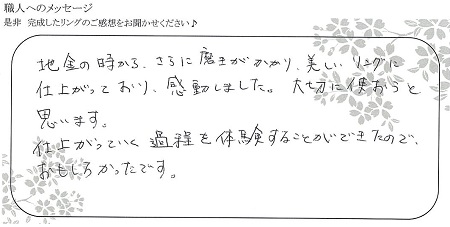 職人へのメッセージ
是非 完成したリングのご感想をお聞かせください♪
地金の時から、さらに磨きがかかり、美しいリングに
仕上がっており、感動しました。大切に使おうと
思います。
仕上がっていく過程を体験することができたので、
おもしろかったです。